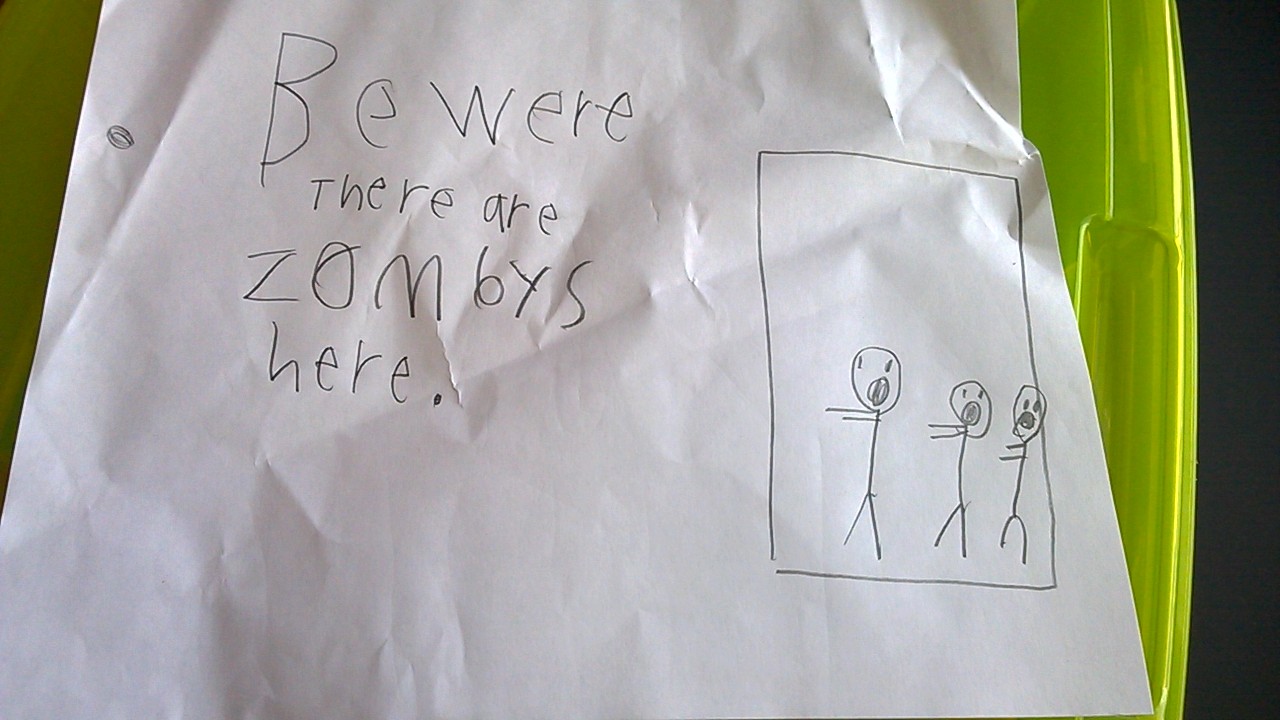 Be were
There are
ZOMbys
here.